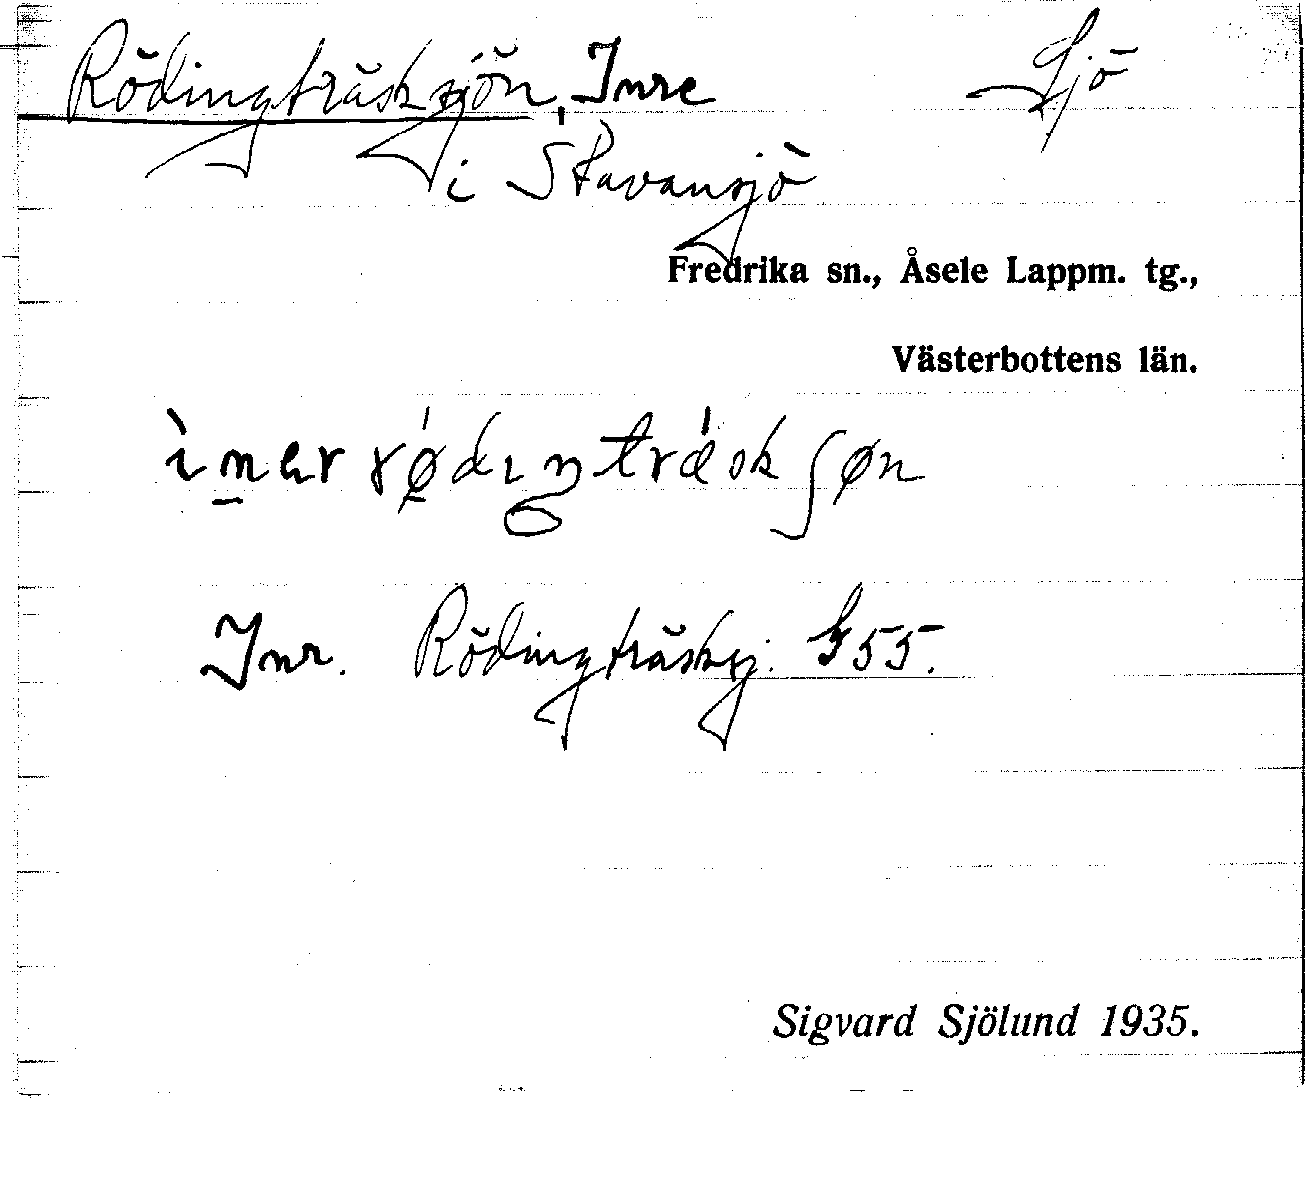 Rödingträsksjön, Inre Sjö
i Stavansjö
Fredrika sn., Åsele Lappm. tg.,
Västerbottens län.
ìnər rǿdıŋtrǽskʃøn
Inr. Rödingträsksj. G55.
Sigvard Sjölund 1935.